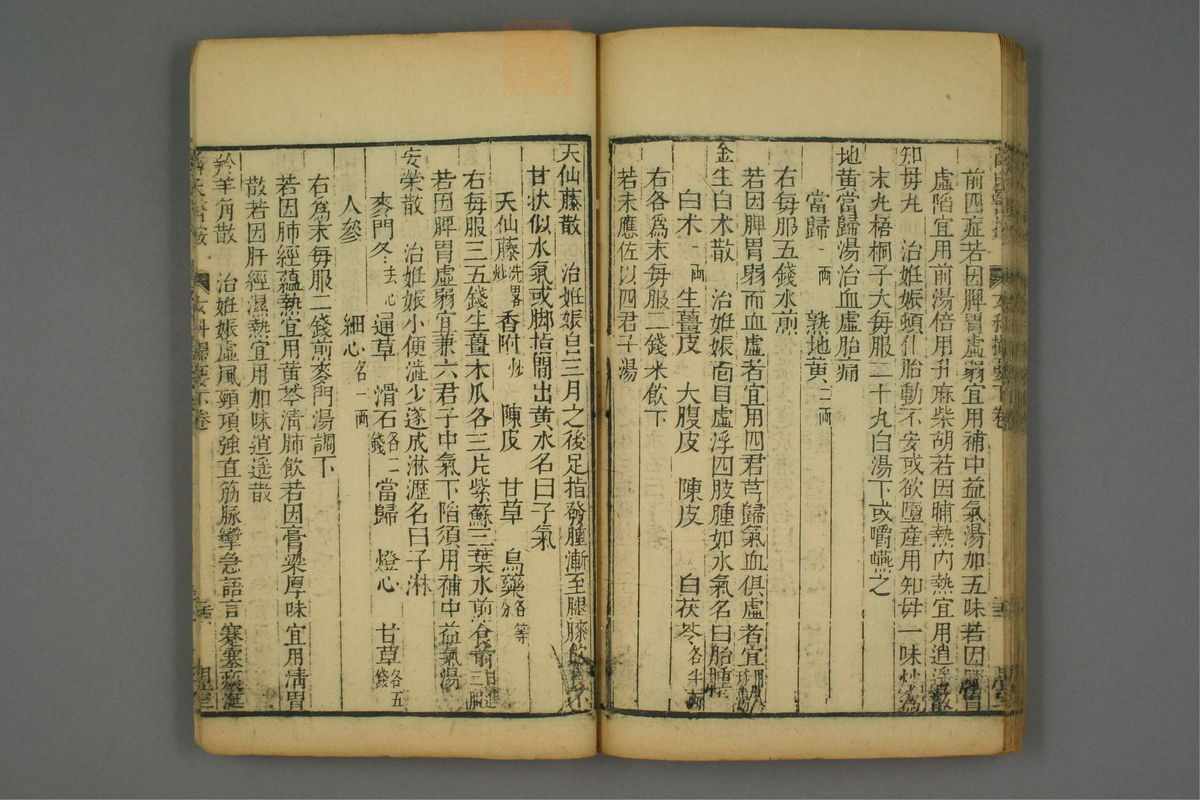 前四症若因脾胃虛弱宜用補中益氣湯加五味若因脾胃
虛陷宜用前湯倍用升麻柴胡若因晡熱內熱宜用逍遙散
知母丸　治姙娠頓仆胎動不安或欲墮産用知母一味炒爲
末丸梧桐子大每服二十丸白湯下或嚼嚥之
地黃當歸湯治血虛胎痛
當歸一兩　熟地黃二兩
右每服五錢水煎
若因脾胃弱而血虛者宜用四君芎歸氣血俱虛者宜用八珍湯
金生白术散　治姙娠面目虛浮四肢腫如水氣名曰胎腫
白术一兩　生薑皮　大腹皮　陳皮　白茯苓各半兩
右各爲末每服二錢米飲下
若未應佐以四君子湯
天仙藤散　治姙娠自三月之後足指發腫漸至腿膝飲
甘狀似水氣或脚指間出黃水名曰子氣
天仙藤洗畧炒　香附炒　陳皮　甘草　烏藥各等分
右每服三五錢生薑木瓜各三片紫蘇三葉水煎食前日進三服
若因脾胃虛弱宜兼六君子中氣下陷須用補中益氣湯
安榮散　治姙娠小便澁少遂成淋瀝名曰子淋
麥門冬去心　通草　滑石各二錢　當歸　燈心　甘草各五錢
人參　細心各一兩
右爲末每服二錢煎麥門湯調下
若因肺經蘊熱宜用黃芩淸肺飲若因膏粱厚味宜用淸胃
散若因肝經濕熱宜用加味逍遙散
羚羊角散　治姙娠虛風頸項強直筋脉攣急語言蹇塞痰涎
女科撮要下卷